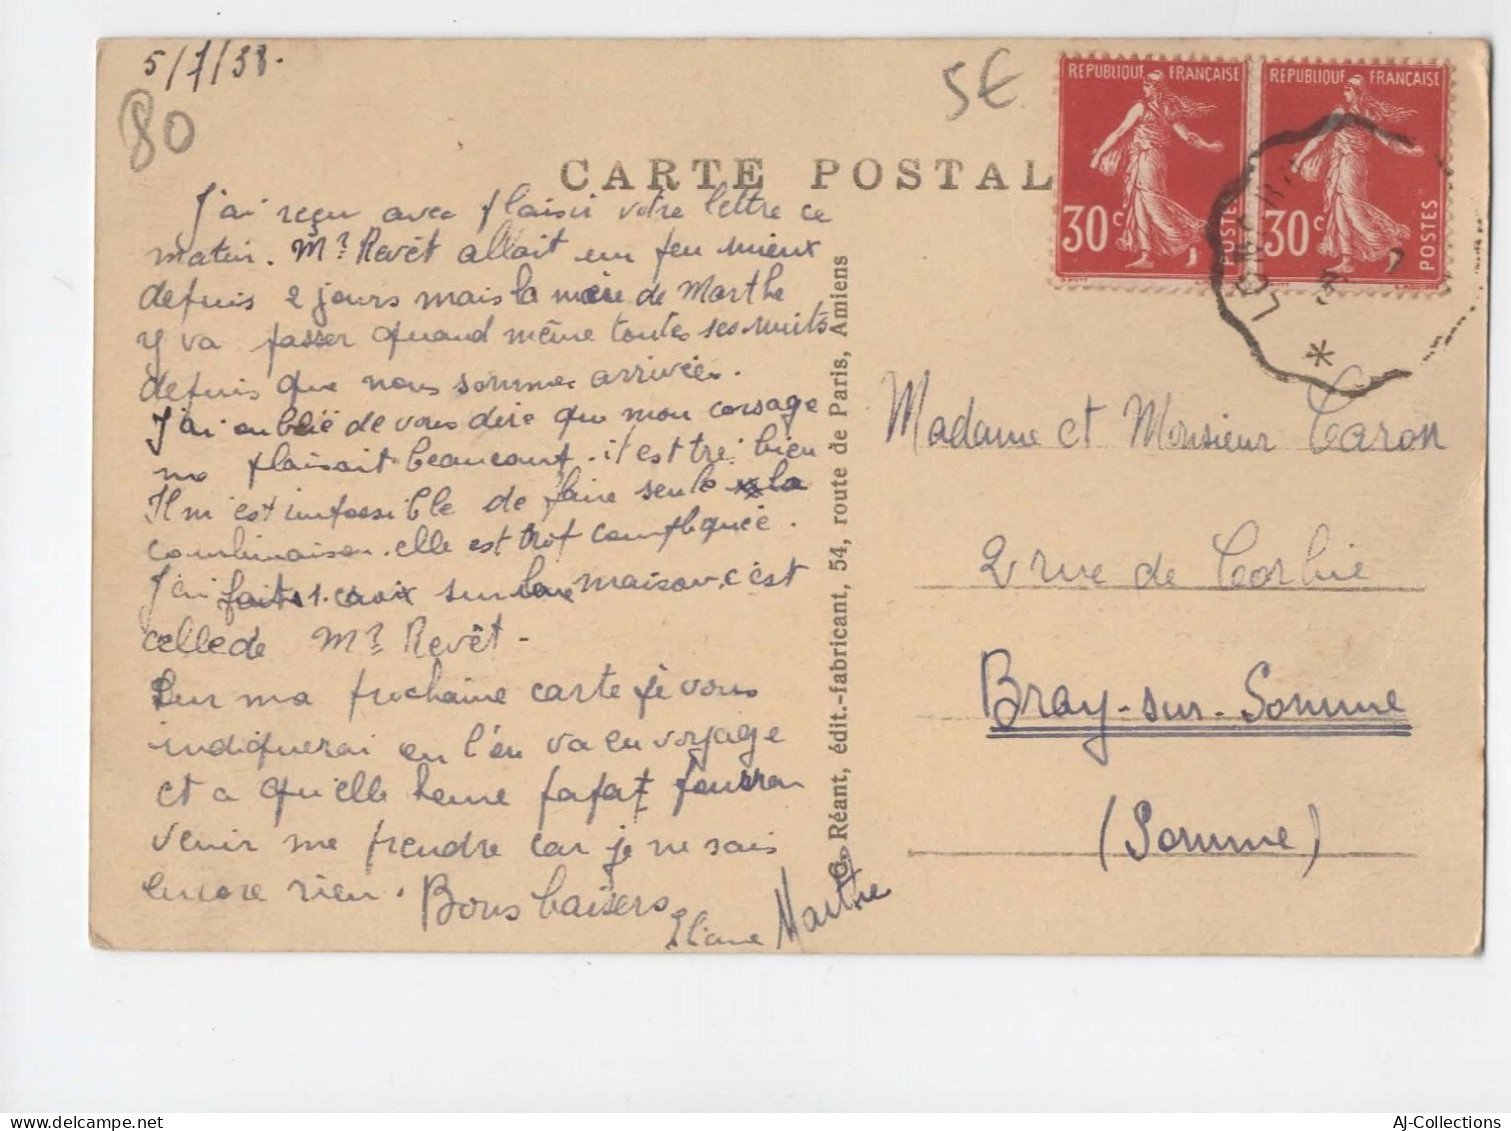 5/7/38.
80
5€
CARTE POSTAL
REPUBLIQUE FRANÇAISE
30c
POSTES
REPUBLIQUE FRANÇAISE
30c
POSTES
J'ai reçu avec plaisir votre lettre ce
matin. Mr Revêt allait un peu mieux
depuis 2 jours mais la mère de Marthe
y va passer quand même toutes ses nuits
depuis que nous sommes arrivées.
J'ai oublié de vous dire que mon corsage
me plaisait beaucoup. il est très bien
Il m'est impossible de faire seule la
combinaison. elle est trop compliquée.
J'ai fait 1 croix sur la maison, c'est
celle de Mr Revêt -
Sur ma prochaine carte je vous
indiquerai où l'on va en voyage
et a qu'elle heure papa pourra
venir me prendre car je ne sais
encore rien. Bons baisers
Eliane Marthe
G. Réant, édit.-fabricant, 54, route de Paris, Amiens
Madame et Monsieur Caron
2 rue de Corbie
Bray-sur-Somme
(Somme)
AJ-Collections